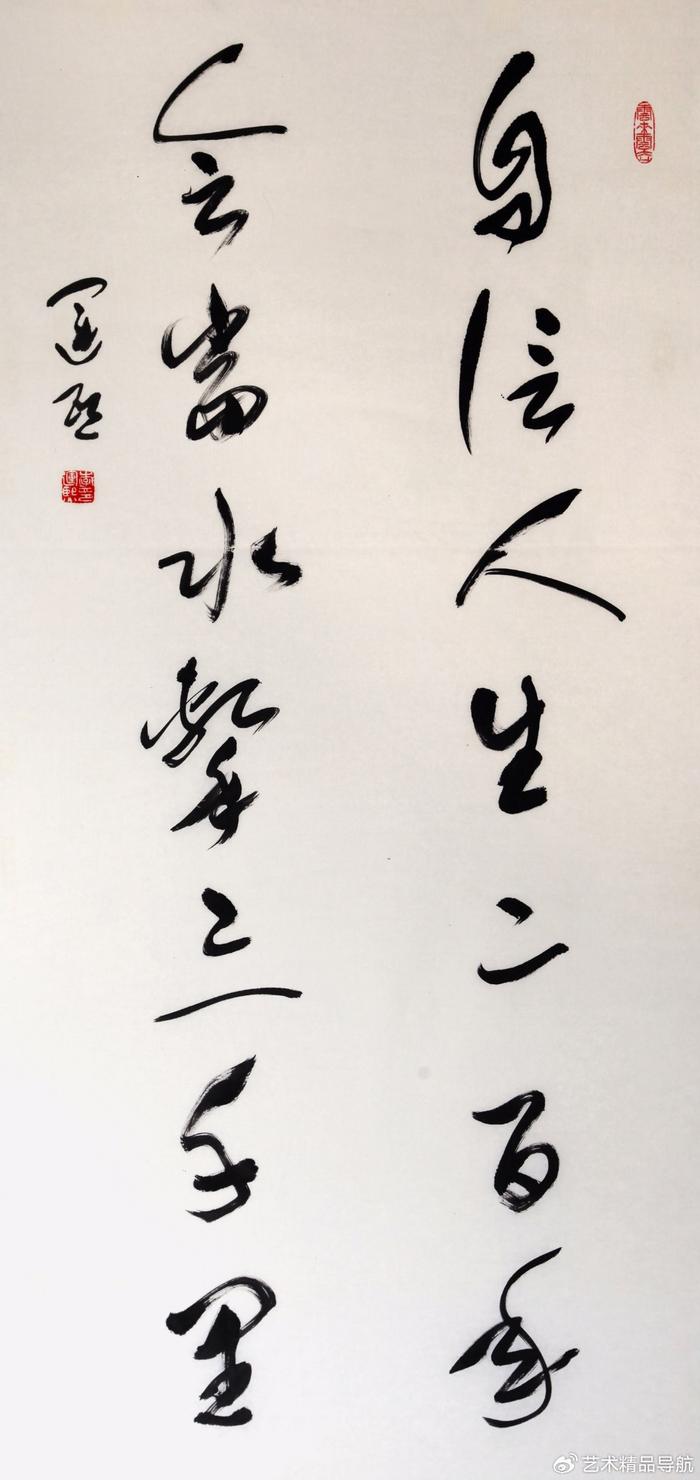 自信人生二百年
会當水擊三千里
運熙
艺术精品导航